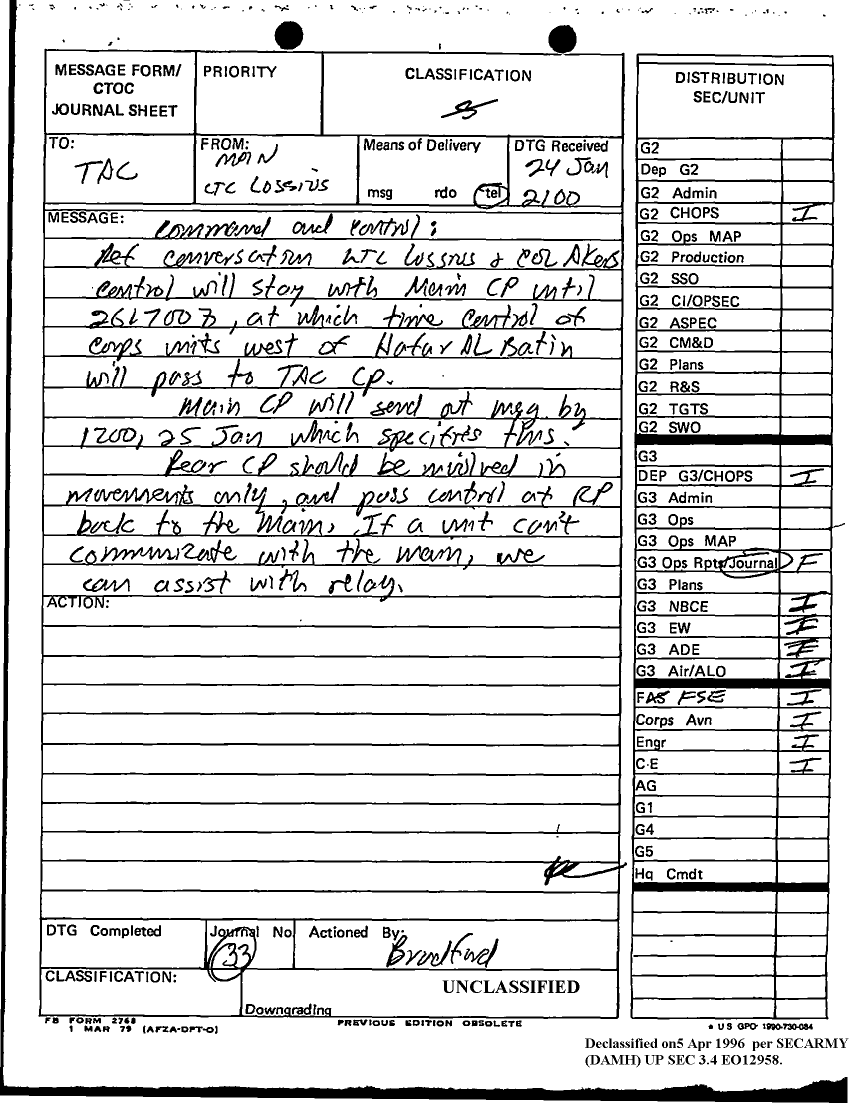 MESSAGE FORM/
CTOC
JOURNAL SHEET
PRIORITY
CLASSIFICATION
S
TO:
TAC
FROM:
MAIN
LTC LOSSIUS
Means of Delivery
msg rdo tel
DTG Received
24 Jan
2100
MESSAGE: Command and control:
Ref conversation LTC Lossius & COL Akers
control will stay with Main CP until
261700Z, at which time control of
Corps units west of Hafar AL Batin
will pass to TAC CP.
Main CP will send out msg by
1200, 25 Jan which specifies this.
Rear CP should be involved in
movements only, and pass control at RP
back to the Main. If a unit can't
communicate with the main, we
can assist with relay.
ACTION:
DTG Completed
Journal No
33
Actioned By:
Bradford
CLASSIFICATION:
UNCLASSIFIED
Downgrading
FB FORM 2768
1 MAR 79 (AFZA-DPT-O)
PREVIOUS EDITION OBSOLETE
DISTRIBUTION
SEC/UNIT
G2
Dep G2
G2 Admin
G2 CHOPS I
G2 Ops MAP
G2 Production
G2 SSO
G2 CI/OPSEC
G2 ASPEC
G2 CM&D
G2 Plans
G2 R&S
G2 TGTS
G2 SWO
G3
DEP G3/CHOPS I
G3 Admin
G3 Ops
G3 Ops MAP
G3 Ops Rpts/Journal F
G3 Plans
G3 NBCE I
G3 EW I
G3 ADE I
G3 Air/ALO I
FAS FSE I
Corps Avn I
Engr I
C-E I
AG
G1
G4
G5
Hq Cmdt
* U S GPO 1990-730-084
Declassified on5 Apr 1996 per SECARMY
(DAMH) UP SEC 3.4 EO12958.